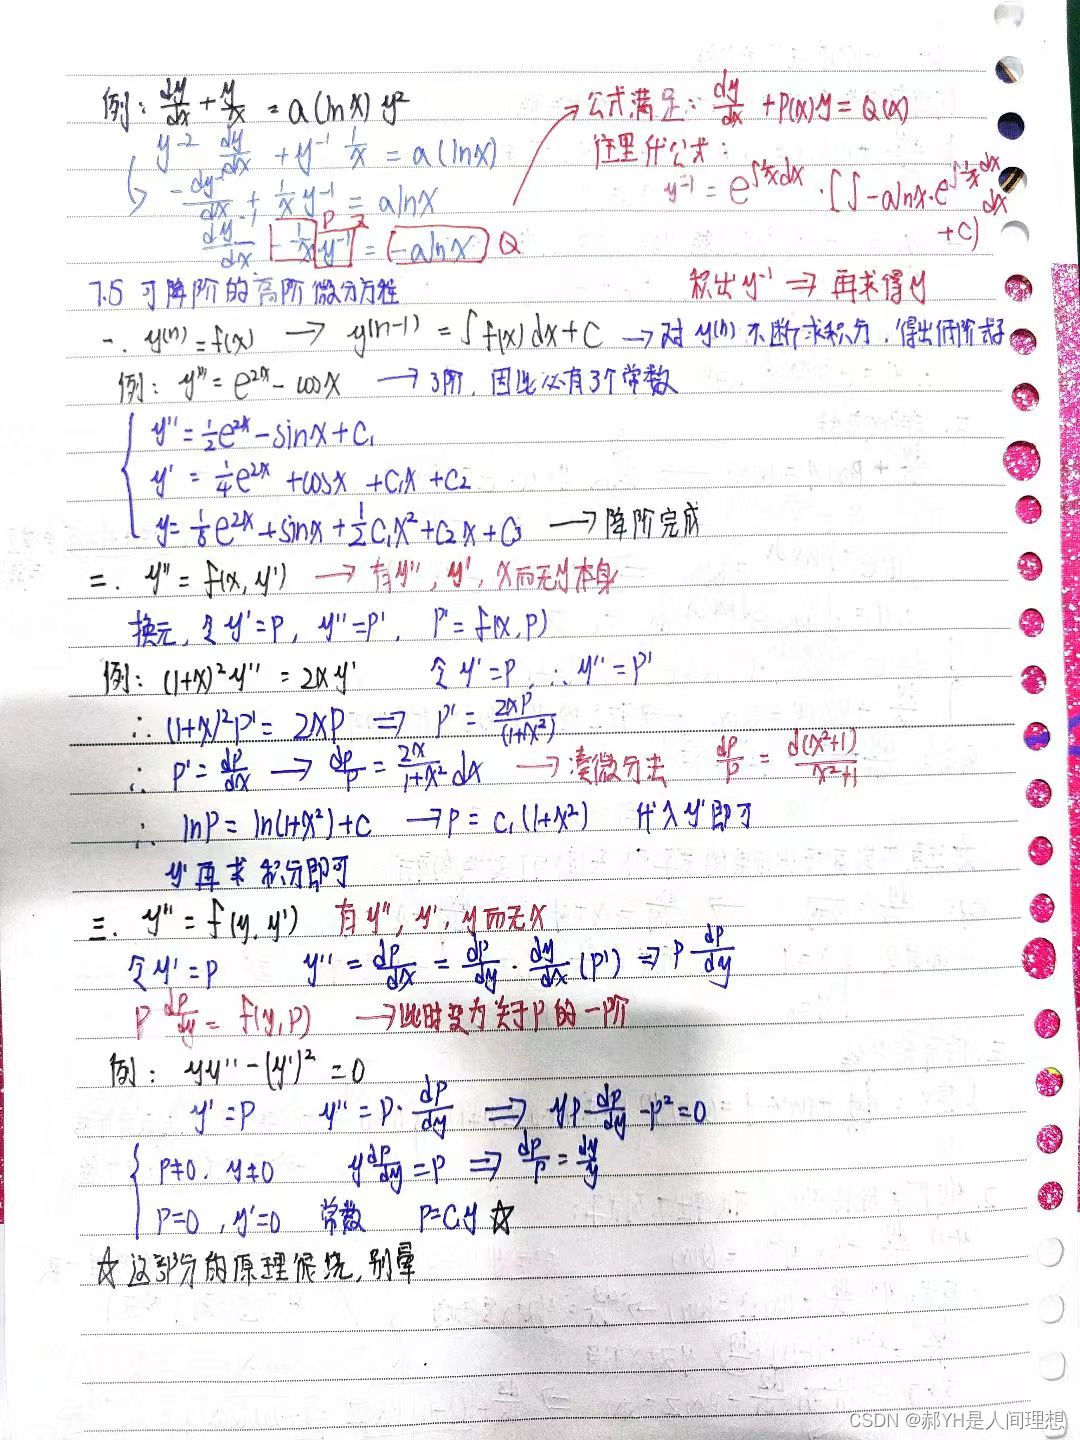 例: dy/dx + y/x = a(lnx) y²
→ 公式满足: dy/dx + P(x)y = Q(x)
y⁻² dy/dx + y⁻¹ 1/x = a(lnx)
往里代公式:
-dy⁻¹/dx + 1/x y⁻¹ = alnx
y⁻¹ = e^∫1/x dx · [∫-alnx·e^∫1/x dx dx + C)
dy⁻¹/dx - 1/x y⁻¹ = -alnx Q
P
积出 y⁻¹ ⇒ 再求得y
7.5 可降阶的高阶微分方程
一. y(n) = f(x) → y(n-1) = ∫f(x)dx + C → 对 y(n) 不断求积分, 得出低阶式子
例: y''' = e^2x - cosx → 3阶, 因此必有3个常数
y'' = 1/2 e^2x - sinx + C₁
y' = 1/4 e^2x + cosx + C₁x + C₂
y = 1/8 e^2x + sinx + 1/2 C₁x² + C₂x + C₃ → 降阶完成
二. y'' = f(x, y') → 有y'', y', x而无y本身
换元, 令 y' = P, y'' = P', P' = f(x, P)
例: (1+x)²y'' = 2xy' 令 y' = P, ∴ y'' = P'
∴ (1+x)²P' = 2xP ⇒ P' = 2xP/(1+x²)
∴ P' = dP/dx → dP/P = 2x/1+x² dx → 凑微分法 dP/P = d(x²+1)/x²+1
∴ lnP = ln(1+x²)+C → P = C₁(1+x²) 代入y'即可
y'再求积分即可
三. y'' = f(y, y') 有y'', y', y而无x
令y' = P y'' = dP/dx = dP/dy · dy/dx (P') ⇒ P dP/dy
P dP/dy = f(y, P) → 此时变为关于P的一阶
例: yy'' - (y')² = 0
y' = P y'' = P · dP/dy ⇒ yP dP/dy - P² = 0
P≠0, y≠0 y dP/dy = P ⇒ dP/P = dy/y
P=0, y'=0 常数 P=C₁y ☆
☆ 这部分的原理很绕, 别晕
CSDN @郝YH是人间理想